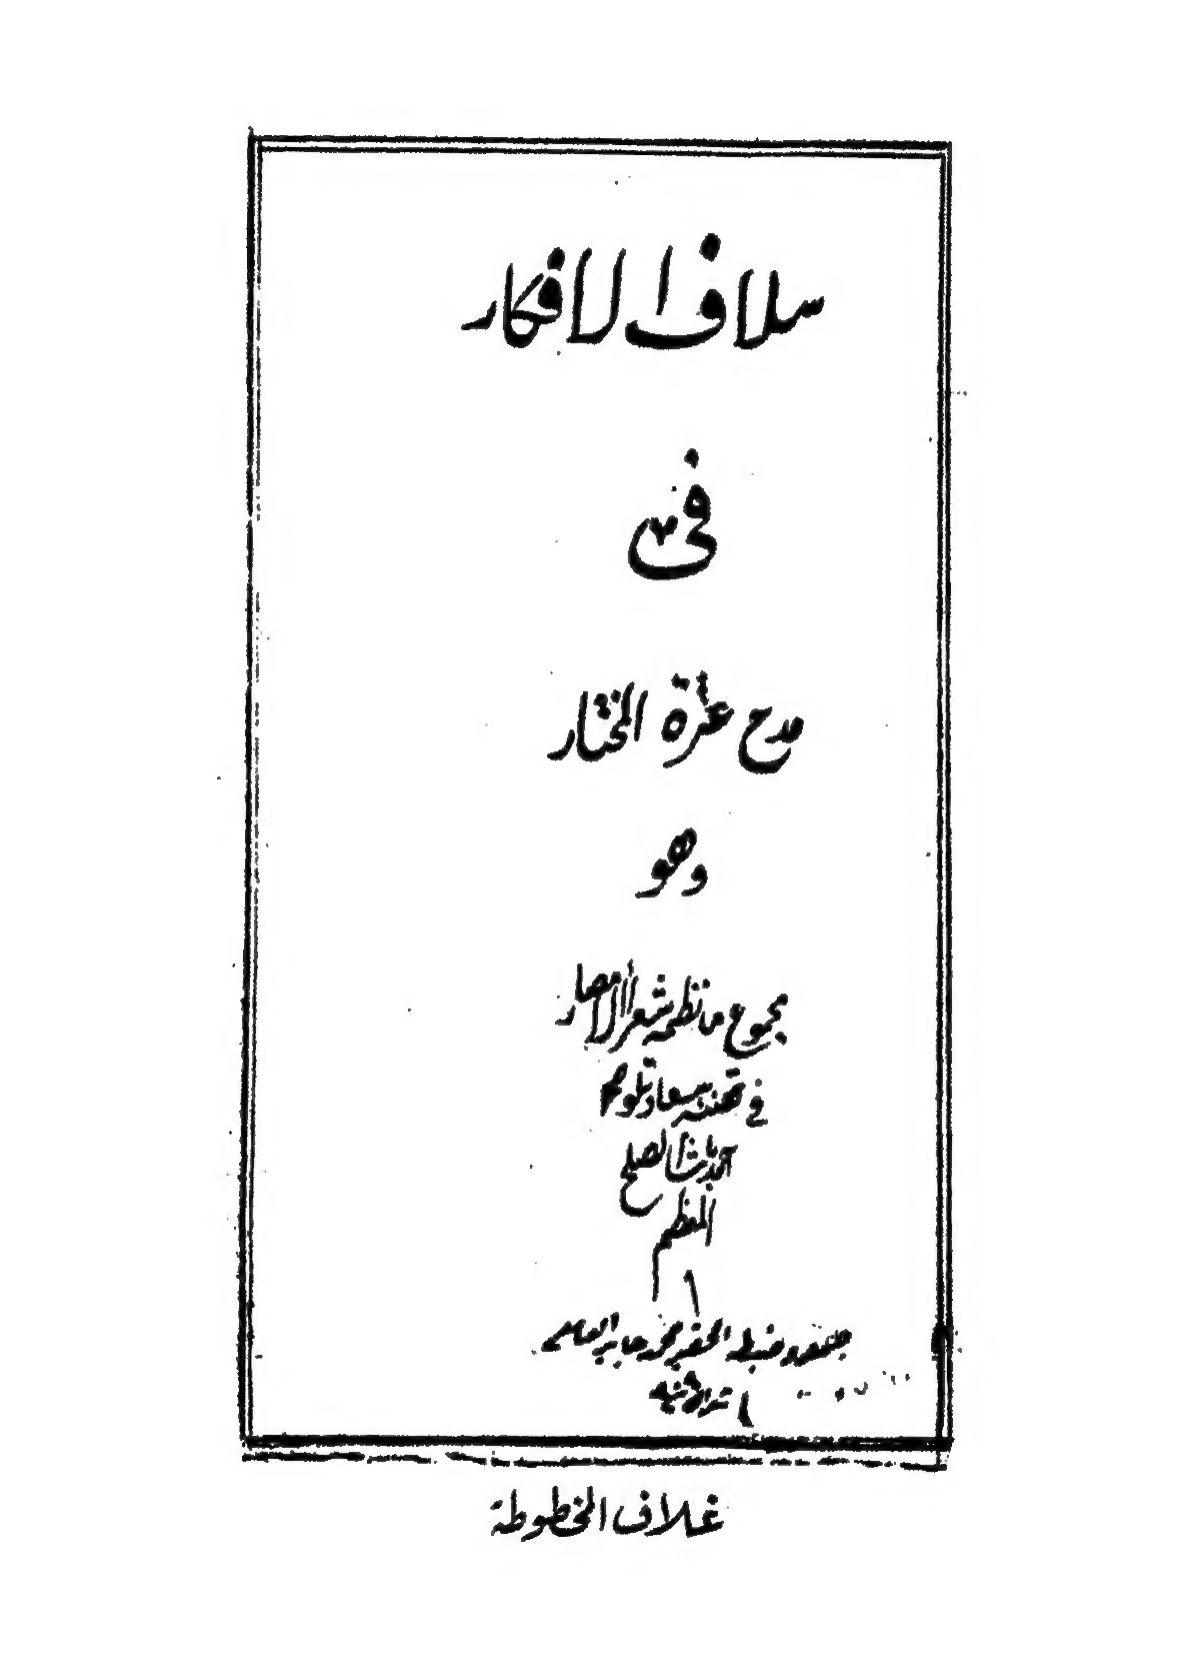 سلاف الافكار
في
مدح عترة المختار
وهو
مجموع ما نظمه شعرأ الامصار
في تهنئة سعادتلو
احمد باشا الصلح
المعظم
جمعه وضبطه الحقير محمد جابر العاملي
غلاف المخطوطة